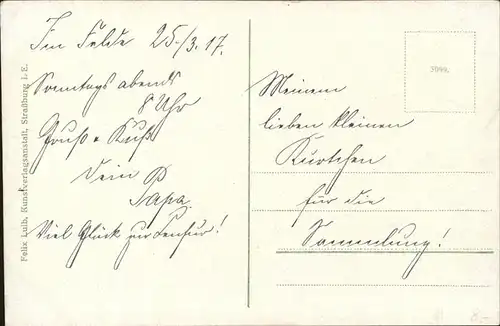 Im Felde 25./3.17.
Sonntags abends
8 Uhr
Gruß + Kuß
Dein
Papa.
Viel Glück zur Zensur!
Meinem
lieben kleinen
Kurtchen
für die
Sammlung!
Felix Luib, Kunstverlagsanstalt, Straßburg i. E.